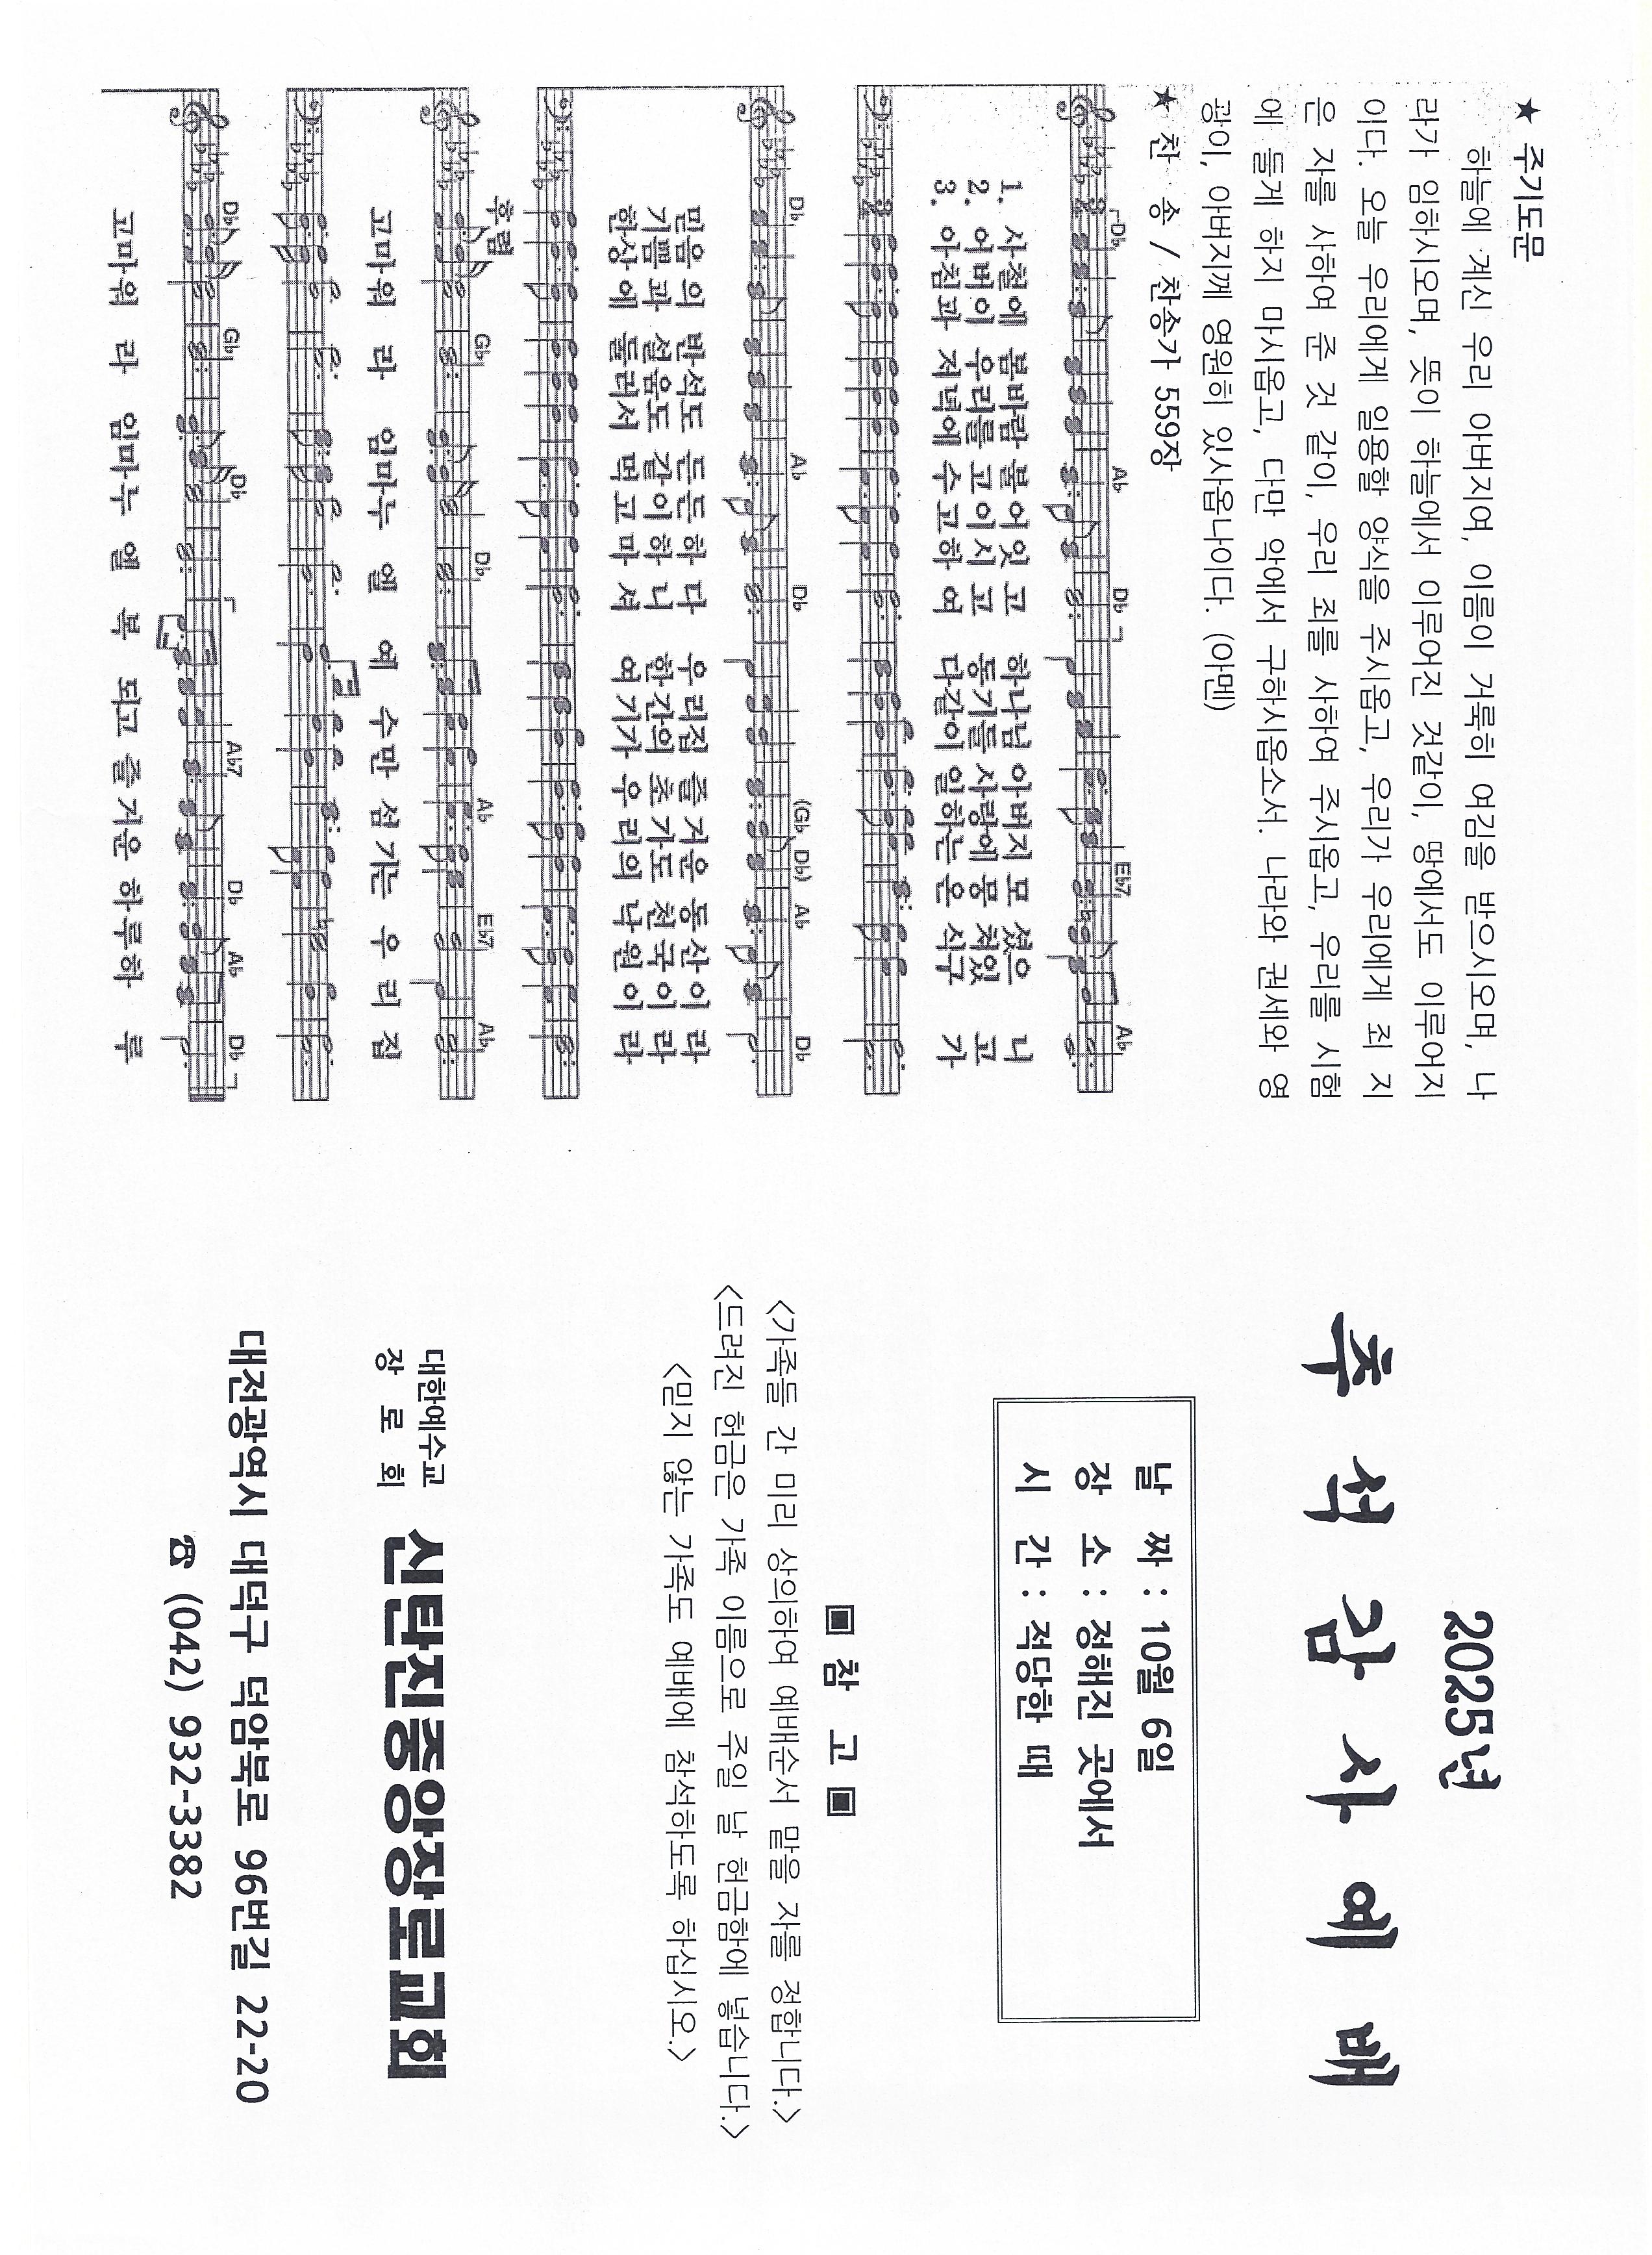 ★ 주기도문
하늘에 계신 우리 아버지여, 이름이 거룩히 여김을 받으시오며, 나
라가 임하시오며, 뜻이 하늘에서 이루어진 것같이, 땅에서도 이루어지
이다. 오늘 우리에게 일용할 양식을 주시옵고, 우리가 우리에게 죄 지
은 자를 사하여 준 것 같이, 우리 죄를 사하여 주시옵고, 우리를 시험
에 들게 하지 마시옵고, 다만 악에서 구하시옵소서. 나라와 권세와 영
광이, 아버지께 영원히 있사옵나이다. (아멘)
★ 찬 송 / 찬송가 559장
Db Ab Db Eb7 Ab
1. 사철에 봄바람 불어잇 고 하나님 아버지 모 셨으 니
2. 어버이 우리를 고이시 고 동기들 사랑에 뭉 쳐있 고
3. 아침과 저녁에 수고하 여 다같이 일하는 온 식구 가
Db Ab Db (Gb Db) Ab Db
믿음의 반석도 든든하 다 우리집 즐거운 동산이 라
기쁨과 설움도 같이하 니 한간의 초가도 천국이 라
한상에 둘러서 먹고마 셔 여기가 우리의 낙원이 라
후렴
Gb Db Ab Eb7 Ab
고마워 라 임마누 엘 예 수만 섬기는 우 리 집
Db Gb Db Ab7 Db Ab Db
고마워 라 임마누 엘 복 되고 즐거운 하루하 루
2025년
추 석 감 사 예 배
날 짜 : 10월 6일
장 소 : 정해진 곳에서
시 간 : 적당한 때
▣ 참 고 ▣
<가족들 간 미리 상의하여 예배순서 맡을 자를 정합니다.>
<드려진 헌금은 가족 이름으로 주일 날 헌금함에 넣습니다.>
<믿지 않는 가족도 예배에 참석하도록 하십시오.>
대한예수교
장 로 회 신탄진중앙장로교회
대전광역시 대덕구 덕암북로 96번길 22-20
☎ (042) 932-3382